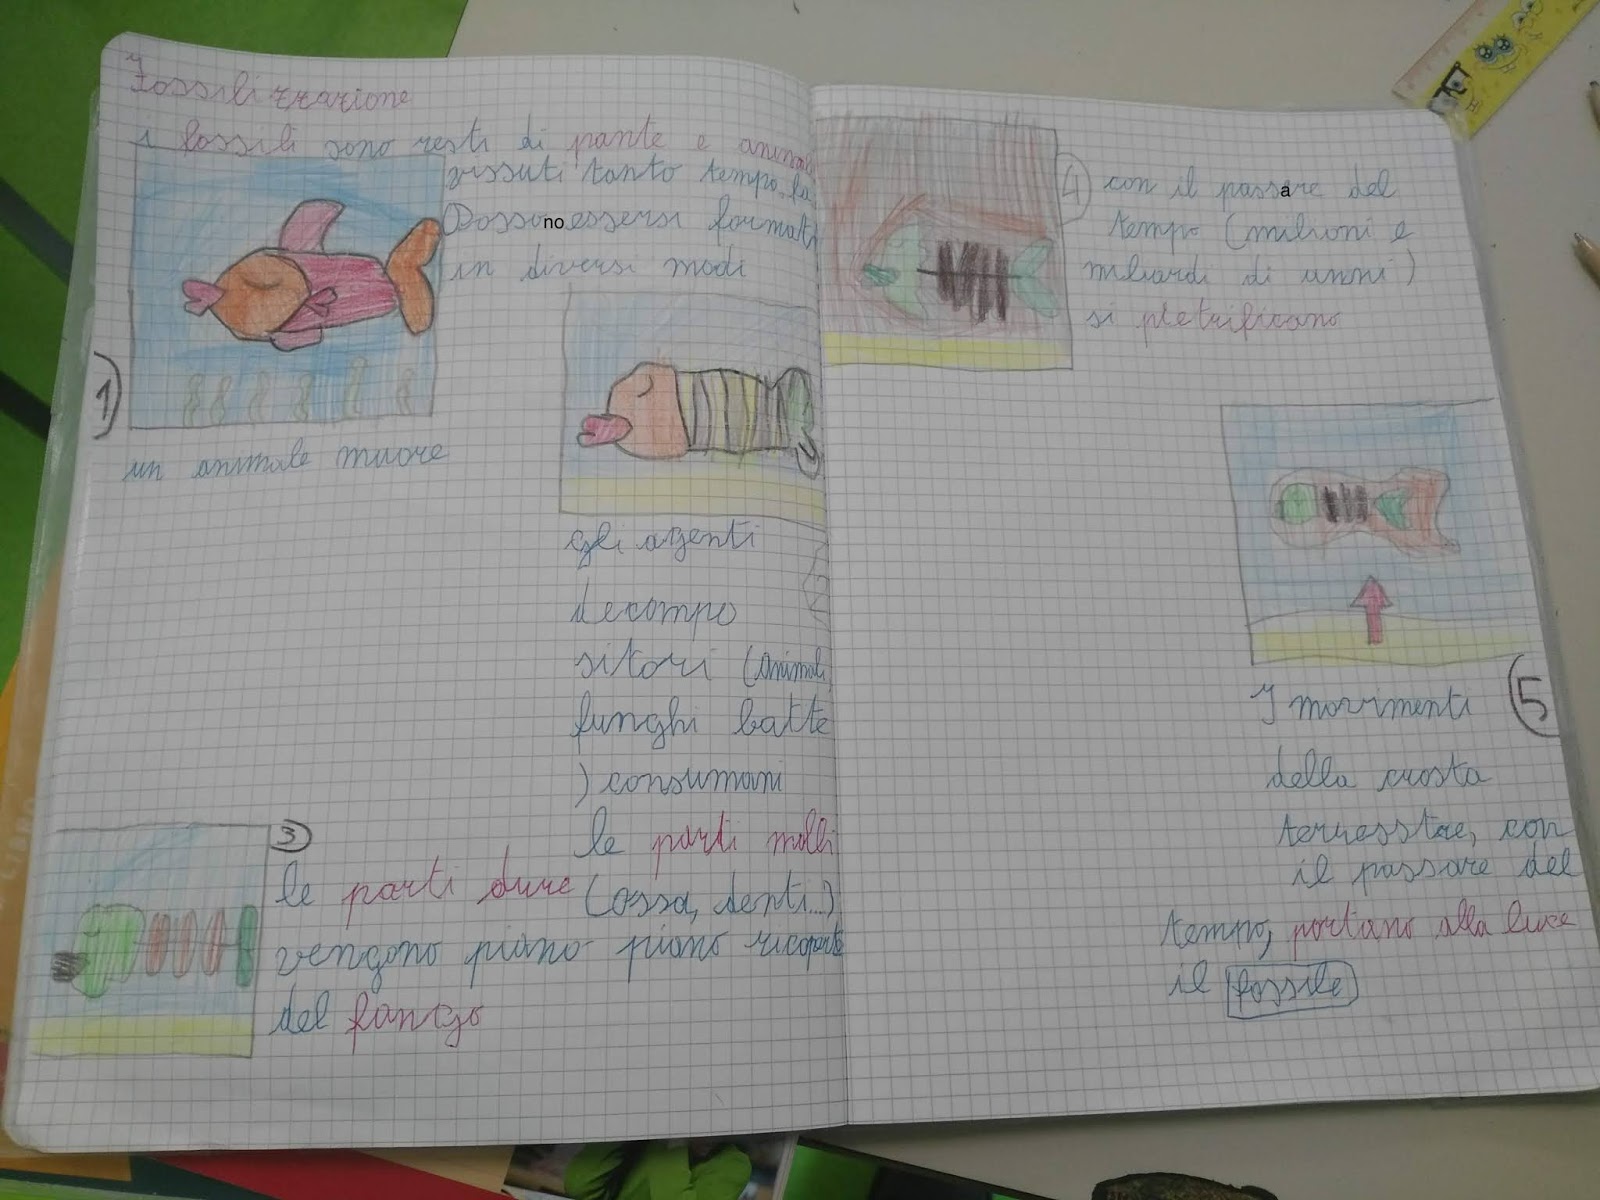 Fossilizzazione
i fossili sono resti di pante e animali
vissuti tanto tempo fa
Possono essersi formati
in diversi modi
1
un animale muore
gli agenti
decompo
sitori (animali
funghi batte
) consumani
le parti molli
3
le parti dure (ossa, denti...)
vengono piano piano ricoperte
del fango
4
con il passare del
tempo (milioni e
miliardi di anni)
si pietrificano
5
I movimenti
della crosta
terresstre, con
il passare del
tempo, portano alla luce
il fossile